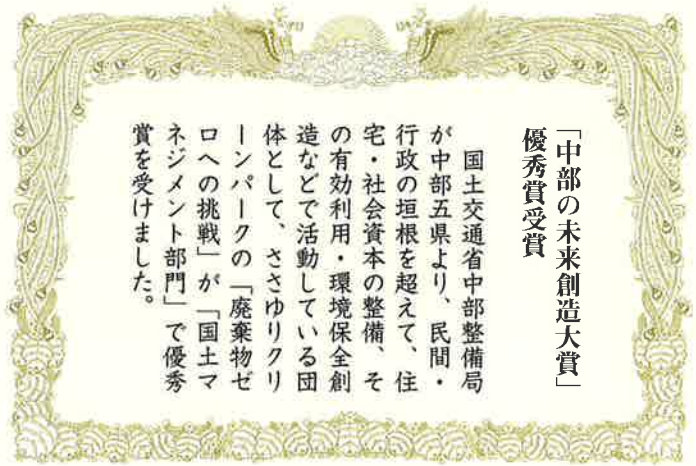 「中部の未来創造大賞」
優秀賞受賞
国土交通省中部整備局
が中部五県より、民間・
行政の垣根を超えて、住
宅・社会資本の整備、そ
の有効利用・環境保全創
造などで活動している団
体として、ささゆりクリ
ーンパークの「廃棄物ゼ
ロへの挑戦」が「国土マ
ネジメント部門」で優秀
賞を受けました。